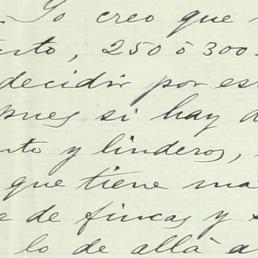 Yo creo que
250 ó 300
decidir por es
pues si hay d
to y linderos,
que tiene ma
e de fincas y
lo de allá a